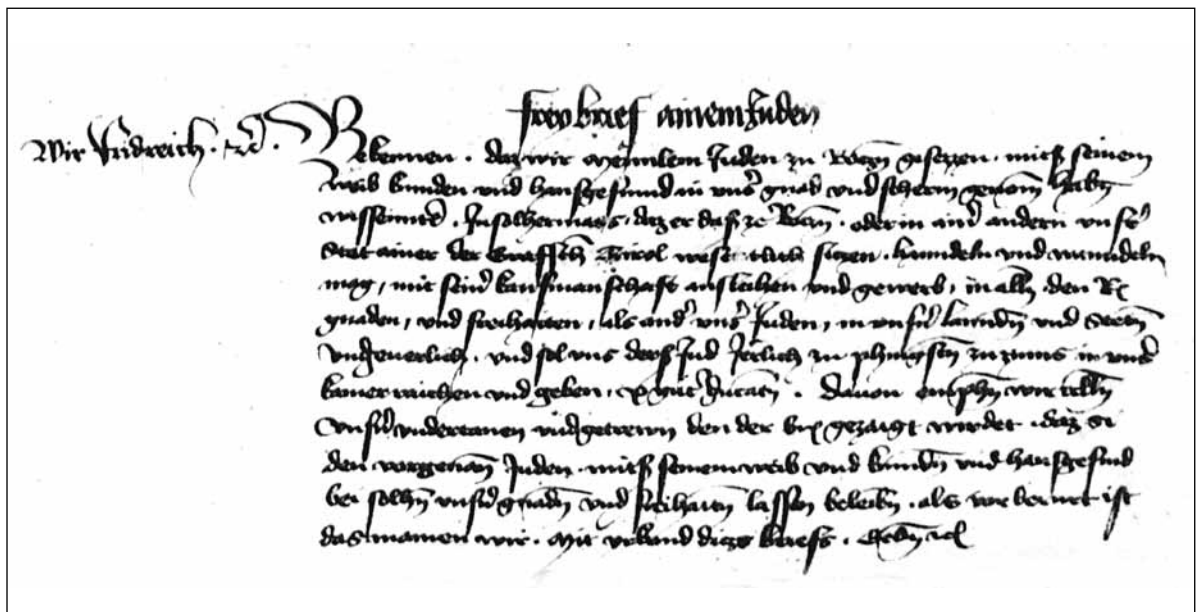 frey brief ainem Juden
Wir Fridreich · etc · Bekennen · daz wir Mennlem Juden zu gesezzen · mits seinem
weib kinden und hausgesinnd in uns' gnad und scherm genom haben
wissentl' · In solhermass · daz er daselbs ze · oder in ain' andern unser'
Stet ainer der Graffsch Tirol wesentlich siczen · hanndeln und wanndeln
mag / mit sein' kaufmanschaft ausleihen und gewerb / in alln den
gnaden / und freihaiten / als and' uns' Juden / in unsern lannden und Steten
ungeuerlich · und sol uns ders Jud Jerlich zu phingsten zu zinns in uns'
kamer raichen und geben / x gut ducaten · Dauon emphelhen wir allen
unsern undertanen und getrewn den der brief gezaigt wirdet · daz si
den vorgenanten Juden · mits seinem weib und kinden und hausgesind
bei solhen unsern gnaden und freihaiten lassen beleiben · als vor berurt ist
das mainen wir · Mit urkund diczs briefs · Geben etc